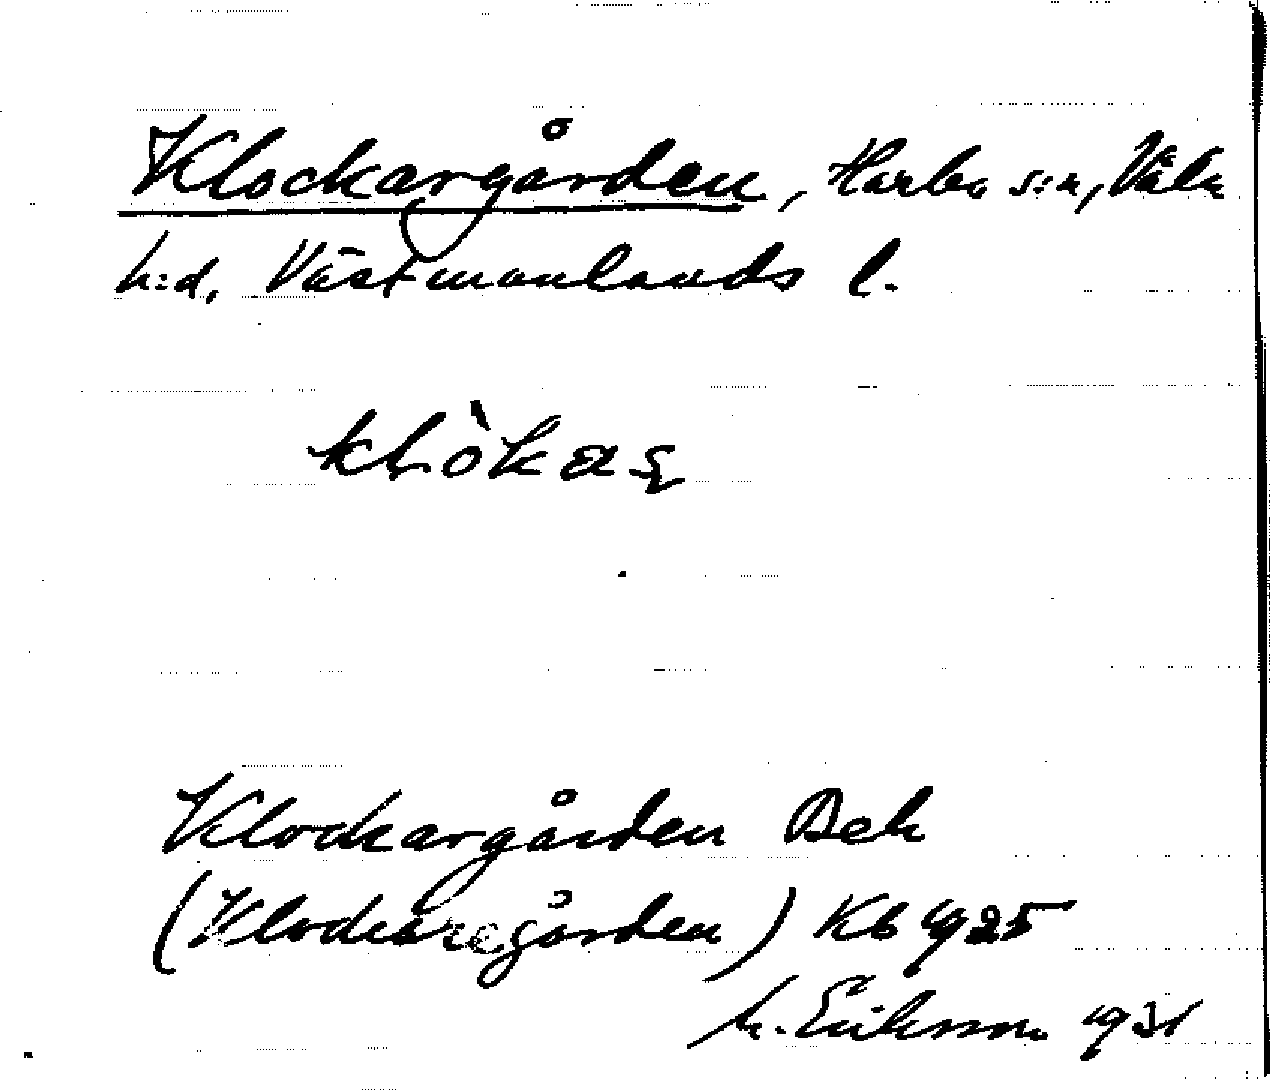 Klockargården, Harbo s:n, Våla
h:d, Västmanlands l.
Klockargården Jek
(Klockaregården) Kb 1925
M. Eriksson 1931